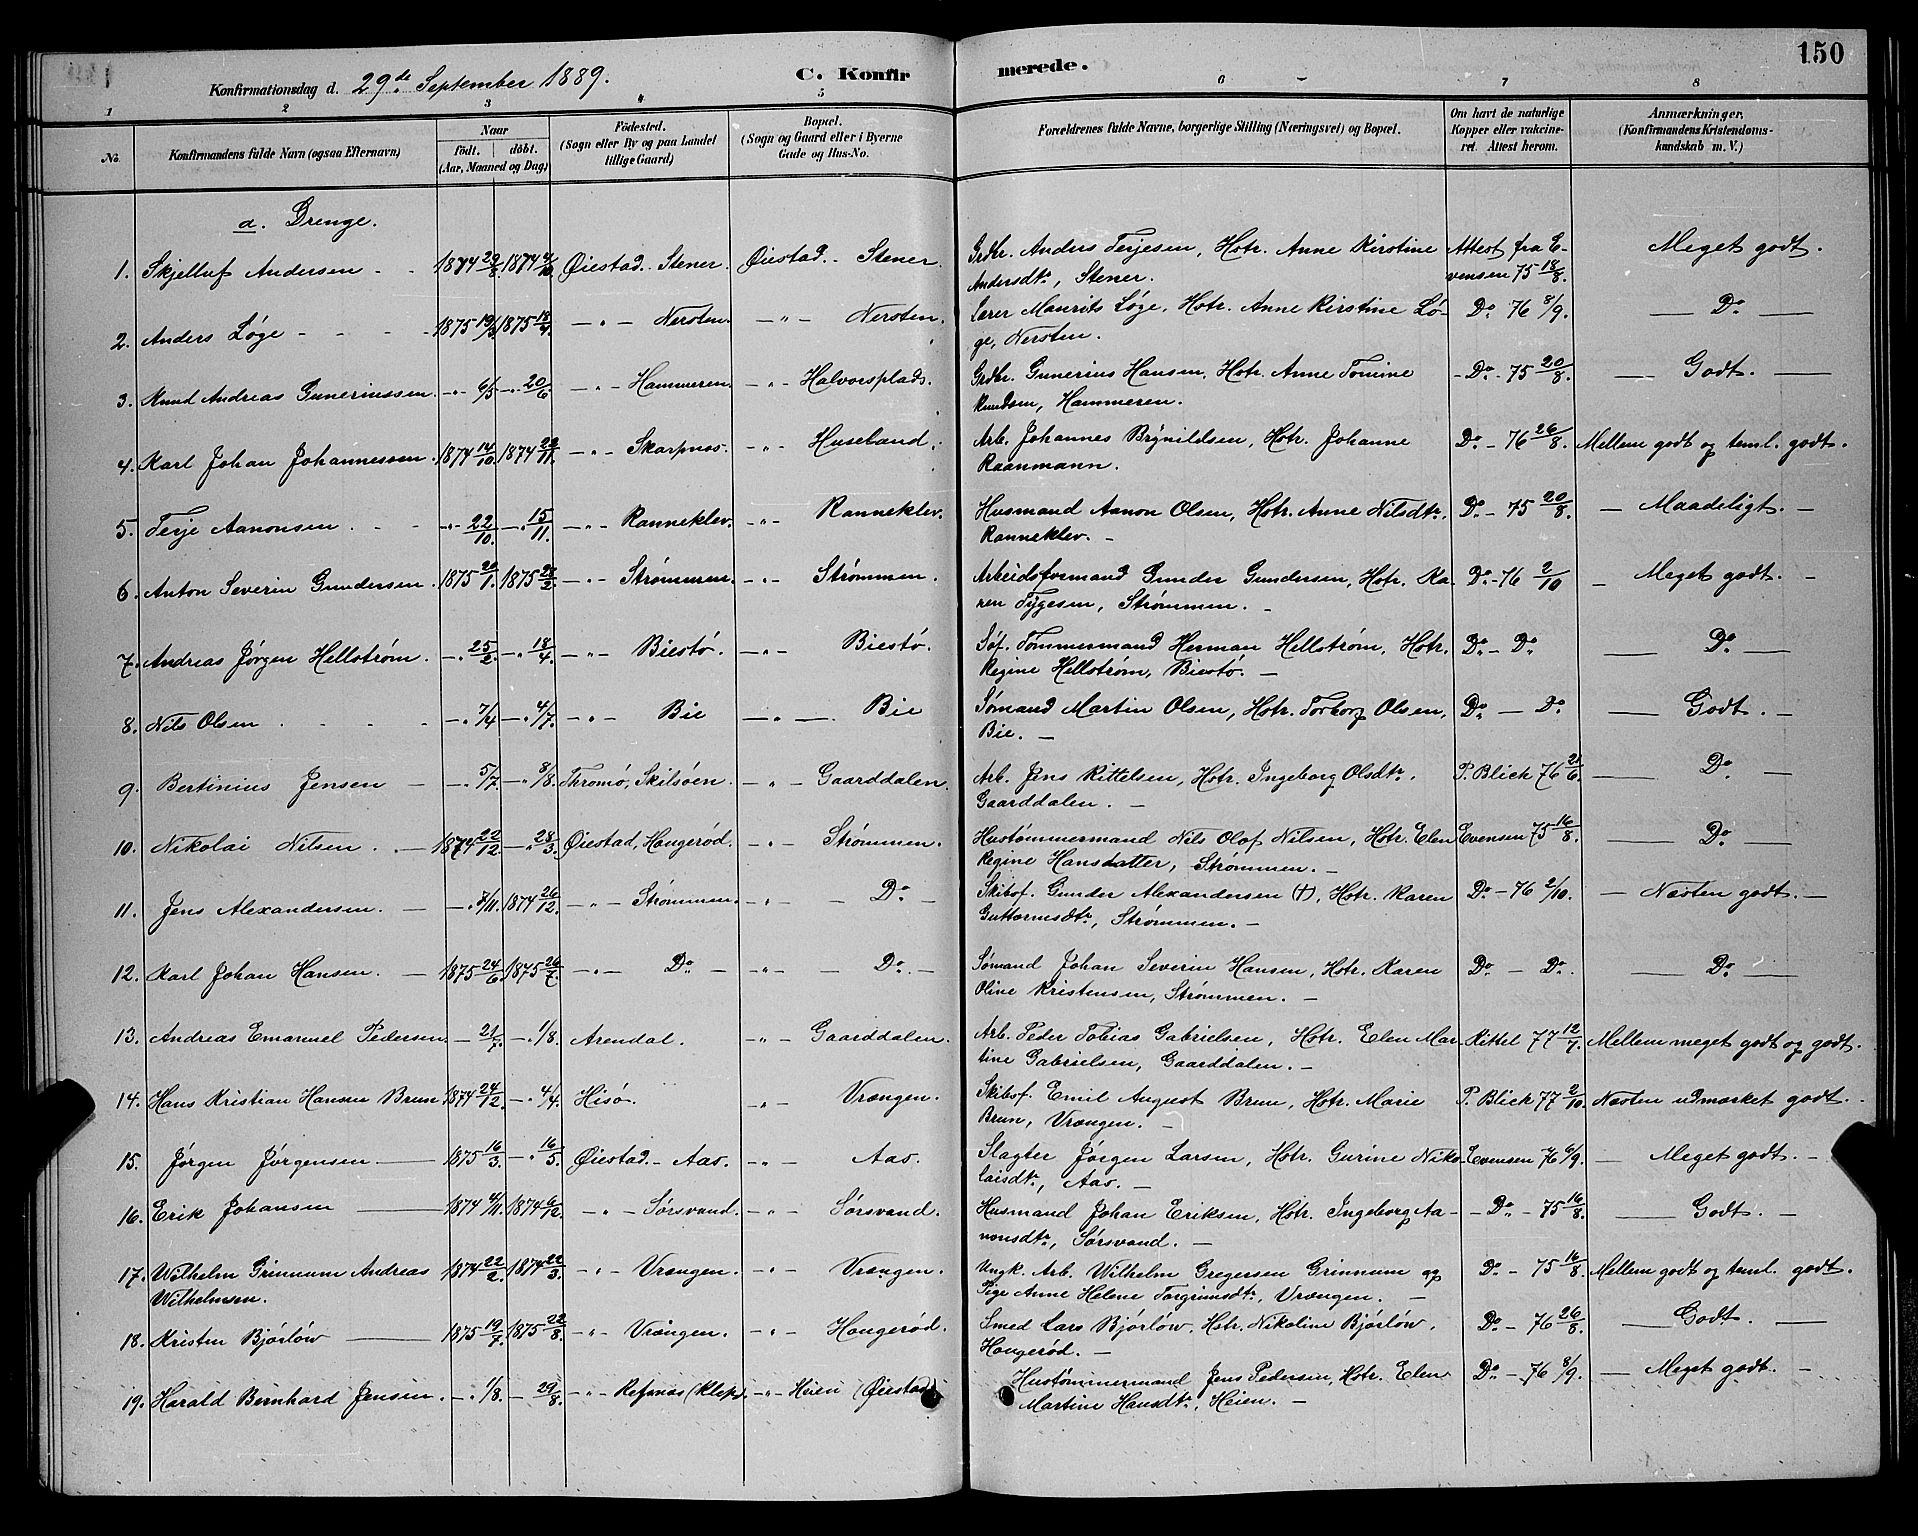 150
Konfirmationsdag d. 29de September 1889. C. Konfirmerede.
1 2 3 4 5 6 7 8
No. Konfirmandens fulde Navn (ogsaa Efternavn) Naar født. døbt. (Aar, Maaned og Dag) Fødested. (Sogn eller By og paa Landet tillige Gaard) Bopæl. (Sogn og Gaard eller i Byerne Gade og Hus-No. Forældrenes fulde Navne, borgerlige Stilling (Næringsvei) og Bopæl. Om havt de naturlige Kopper eller vakcineret. Attest herom. Anmærkninger. (Konfirmandens Kristendomskundskab m. V.)
a. Drenge.
1. Skjelluf Andersen - - 1874 29/8. 1874 4/10. Øiestad.. Stener. Øiestad.. Stener. Grdbr. Anders Terjesen, Hstr. Anne Kirstine Attest fra E- Meget godt.
Andersdtr, Stener. vensen 75 18/8.
2. Anders Løge - - - - 1875 19/3. 1875 18/4. -"- Nersten. -"- Nersten. Lærer Maurits Løge, Hstr. Anne Kirstine Lø- Do. 76 8/9. Do
ge, Nersten.
3. Knud Andreas Gunerinssen. -"- 6/5 -"- 20/6 -"- Hammeren. -"- Halvorsplads. Grdbr. Gunerius Hansen, Hstr. Anne Tomine -Do.- 75 20/8. Godt.
Knudsen, Hammeren.
4. Karl Johan Johannessen. 1874 14/10. 1874 22/11. -"- Skarpnes. -"- Huseland. Arb. Johannes Brynildsen, Hstr. Johanne Do - 76 26/8. Mellem godt og teml. godt.
Raanmann.
5. Terje Aanonsen. - - -"- 22/10. -"- 15/11. -"- Ranneklev. -"- Ranneklev. Husmand Aanon Olsen, Hstr. Anne Nilsdtr. Do. - 75 20/8. - Maadeligt. -
Ranneklev. -
6. Anton Severin Gundersen. 1875 20/1. 1875 28/2. -"- Strømmen. -"- Strømmen. Arbeidsformand Gunder Gundersen, Hstr. Ka- Do. - 76 2/10 - Meget godt. -
ren Tygesen, Strømmen. -
7. Andreas Jørgen Hellstrøm. -"- 25/2. -"- 18/4. -"- Biestø. -"- Biestø. Søf. Tømmermand Herman Hellstrøm, Hstr. Do - Do Do
Regine Hellstrøm, Biestø. -
8. Nils Olsen . - - - -"- 7/4 -"- 4/7. -"- Bie -"- Bie Sømand Martin Olsen, Hstr. Torborg Olsen, Do - Do. Godt. -
Bie. -
9. Bertinius Jensen - -"- 5/7 -"- 8/8. Thromø, Skilsøen. -"- Gaarddalen. Arb. Jens Kittelsen, Hstr. Ingeborg Olsdtr. P. Blich 76 21/6 Do
Gaarddalen. -
10. Nikolai Nilsen . - 1874 22/12 -"- 28/3. Øiestad, Hougerød. -"- Strømmen. Hustømmermand Nils Olof Nilsen, Hstr. Elen Evensen 75 16/8. Do
Regine Hansdatter, Strømmen. -
11. Jens Alexandersen. - -"- 7/11. 1874 26/12. -"- Strømmen. -"- - Do - Skibsf. Gunder Alexandersen (†), Hstr. Karen Do - 76 2/10. - Næsten godt. -
Guttormsdtr, Strømmen. -
12. Karl Johan Hansen. - 1875 24/6. 1875 26/7. -"- Do - -"- Do. - Sømand Johan Severin Hansen, Hstr. Karen Do - Do. Do
Oline Kristensen, Strømmen. -
13. Andreas Emanuel Pedersen. -"- 21/7. -"- 1/8. Arendal. -"- Gaarddalen. Arb. Peder Tobias Gabrielsen, Hstr. Elen Mar- Kittel 77 12/7. Mellem meget godt og godt.
tine Gabrielsen, Gaarddalen. -
14. Hans Kristian Hansen Brun 1874 24/12. -"- 4/4. Hisø. -"- Vrængen. Skibsf. Emil August Brun, Hstr. Marie P. Blich 77 2/10. Næsten udmærket godt. -
Brun, Vrængen. -
15. Jørgen Jørgensen - 1875 16/3. -"- 16/5. Øiestad. - Aas. -"- Aas. Slagter Jørgen Larsen, Hstr. Gurine Niko- Evensen 76 6/9. - Meget godt. -
laisdtr, Aas. -
16. Erik Johansen - 1874 4/11. 1874 6/12. -"- Sørsvand. -"- Sørsvand. Husmand Johan Eriksen, Hstr. Ingeborg Aa- - Do - 75 16/8. Godt. -
nonsdtr, Sørsvand. -
17. Wilhelm Grinnum Andreas 1874 22/2. 1874 22/3. -"- Vrængen. -"- Vrængen. Ungk. Arb. Wilhelm Gregersen Grinnum og Do - 75 16/8. Mellem godt og teml. godt.
Wilhelmsen. Pige Anne Helene Torgrimsdtr, Vrængen. -
18. Kristen Bjørløw - 1875 19/7. 1875 22/8. -"- Vrængen. -"- Hougerød. Smed Lars Bjørløw, Hstr. Nikoline Bjørløw, Do - 76 26/8. Godt. -
Hougerød. -
19. Harald Bernhard Jensen. -"- 1/8. -"- 29/8. -"- Refsnæs (Klep) -"- Heien (Øiestad) Hustømmermand Jens Pedersen, Hstr. Elen Do - 76 8/9. - Meget godt. -
Martine Hansdtr, Heien. -